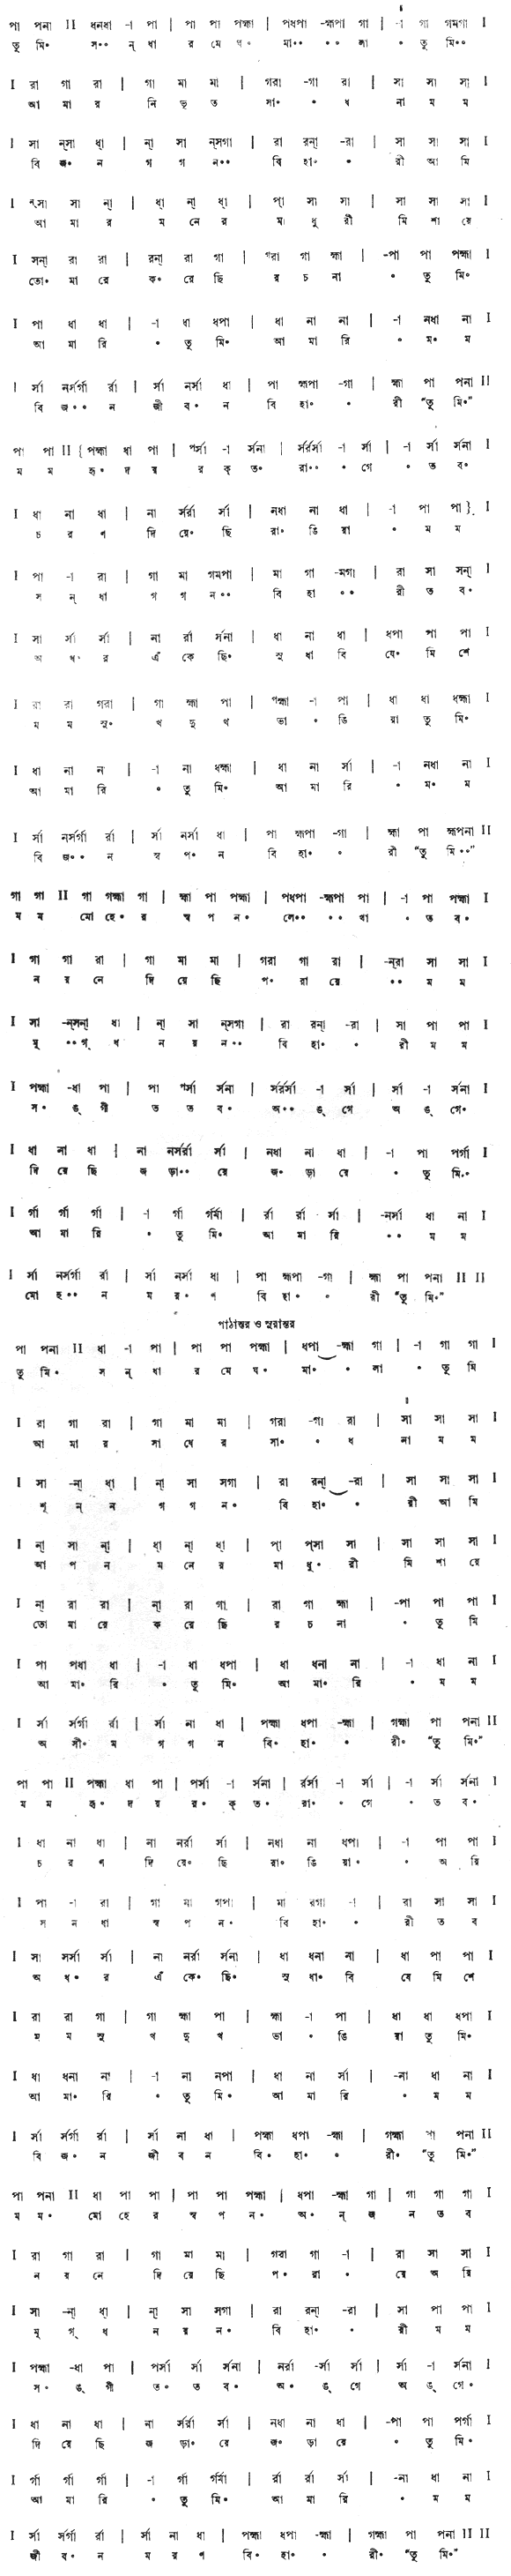 পা পনা II ধনধা -া পা | পা পা পহ্মা | পধপা -হ্মপা গা | -া গা গমগা I
তু মি॰ স॰॰ ন্ ধা র মে ঘ॰ মা॰॰ ॰॰ লা ॰ তু মি॰॰
I রা গা রা | গা মা মা | গরা -গা রা | সা সা সা I
আ মা র নি ভৃ ত সা॰ ॰ ধ না ম ম
I সা ন্‌সা ধ়া | ন়া সা ন্‌সগা | রা রন়া -রা | সা সা সা I
বি জ॰ ন গ গ ন॰॰ বি হা॰ ॰ রী আ মি
I ন্‌সা সা ন়া | ধ়া ন়া ধ়া | প়া সা সা | সা সা সা I
আ মা র ম নে র মা ধু রী মি শা য়ে
I সন়া রা রা | রন়া রা গা | গরা গা হ্মা | -পা পা পহ্মা I
তো॰ মা রে ক॰ রে ছি র চ না ॰ তু মি॰
I পা ধা ধা | -া ধা ধপা | ধা না না | -া নধা না I
আ মা রি ॰ তু মি॰ আ মা রি ॰ ম॰ ম
I র্সা নর্সর্গা র্রা | র্সা নর্সা ধা | পা হ্মপা -গা | হ্মা পা পনা II
বি জ॰॰ ন জী ব॰ ন বি হা॰ ॰ রী "তু মি॰"
পা পা II {পহ্মা ধা পা | পর্সা -া র্সনা | র্সর্রর্সা -া র্সা | -া র্সা র্সনা I
ম ম হৃ॰ দ য় র ক্ ত॰ রা॰॰ ॰ গে ॰ ত ব॰
I ধা না ধা | না র্সর্রা র্সা | নধা না ধা | -া পা পা} I
চ র ণ দি য়ে॰ ছি রা॰ ঙি য়া ॰ ম ম
I পা -া রা | গা মা গমপা | মা গা -মগা | রা সা সন়া I
স ন্ ধা গ গ ন॰॰ বি হা ॰॰ রী ত ব॰
I সা র্সা র্সা | না র্রা র্সনা | ধা না ধা | ধপা পা পা I
অ ধ॰ র এঁ কে ছি॰ সু ধা বি ষে॰ মি শে
I রা রা গরা | গা হ্মা পা | পহ্মা -া পা | ধা ধা ধহ্মা I
ম ম সু॰ খ দু খ ভা ॰ ঙি য়া তু মি॰
I ধা না না | -া না ধহ্মা | ধা না র্সা | -া নধা না I
আ মা রি ॰ তু মি॰ আ মা রি ॰ ম॰ ম
I র্সা নর্সর্গা র্রা | র্সা নর্সা ধা | পা হ্মপা -গা | হ্মা পা হ্মপনা II
বি জ॰॰ ন স্ব প॰ ন বি হা॰ ॰ রী "তু মি॰॰"
গা গা II গা গহ্মা গা | হ্মা পা পহ্মা | পধপা -হ্মপা পা | -া পা পহ্মা I
ম ম মো হে॰ র স্ব প ন॰ লে॰॰ ॰॰ খা ॰ ত ব॰
I গা গা রা | গা মা মা | গরা গা রা | -ন্‌রা সা সা I
ন য় নে দি য়ে ছি প॰ রা য়ে ॰॰ ম ম
I সা -ন্‌সন়া ধ়া | ন়া সা ন্‌সগা | রা রন়া -রা | সা পা পা I
মু ॰॰গ্ ধ ন য় ন॰॰ বি হা॰ ॰ রী ম ম
I পহ্মা -ধা পা | পা পর্সা র্সনা | র্সর্রর্সা -া র্সা | র্সা -া র্সনা I
স॰ ঙ্ গী ত ত ব॰ অ॰॰ ঙ্ গে অ ঙ্ গে॰
I ধা না ধা | না নর্সর্রা র্সা | নধা না ধা | -া পা পর্গা I
দি য়ে ছি জ ড়া॰॰ য়ে জ॰ ড়া য়ে ॰ তু মি॰
I র্গা র্গা র্গা | -া র্গা র্গর্মা | র্রা র্রা র্সা | -নর্সা ধা না I
আ মা রি ॰ তু মি॰ আ মা রি ॰॰ ম ম
I র্সা নর্সর্গা র্রা | র্সা নর্সা ধা | পা হ্মপা -গা | হ্মা পা পনা II II
মো হ॰॰ ন ম র॰ ণ বি হা॰ ॰ রী "তু মি॰"
পাঠান্তর ও সুরান্তর
পা পনা II ধা -া পা | পা পা পহ্মা | ধপা -হ্মা গা | -া গা গা I
তু মি॰ স ন্ ধা র মে ঘ॰ মা॰ ॰ লা ॰ তু মি
I রা গা রা | গা মা মা | গরা -গা রা | সা সা সা I
আ মা র সা ধে র সা॰ ॰ ধ না ম ম
I সা -ন়া ধ়া | ন়া সা সগা | রা রন়া -রা | সা সা সা I
শূ ন্ ন গ গ ন॰ বি হা॰ ॰ রী আ মি
I ন়া সা ন়া | ধ়া ন়া ধ়া | প়া প্‌সা সা | সা সা সা I
আ প ন ম নে র মা ধু॰ রী মি শা য়ে
I ন়া রা রা | ন়া রা গা | রা গা হ্মা | -পা পা পা I
তো মা রে ক রে ছি র চ না ॰ তু মি
I পা পধা ধা | -া ধা ধপা | ধা ধনা না | -া ধা না I
আ মা॰ রি ॰ তু মি॰ আ মা॰ রি ॰ ম ম
I র্সা র্সর্গা র্রা | র্সা না ধা | পহ্মা ধপা -হ্মা | গহ্মা পা পনা II
অ সী॰ ম গ গ ন বি॰ হা॰ ॰ রী॰ "তু মি॰"
পা পা II পহ্মা ধা পা | পর্সা -া র্সনা | র্রর্সা -া র্সা | -া র্সা র্সনা I
ম ম হৃ॰ দ য় র॰ ক্ ত॰ রা॰ ॰ গে ॰ ত ব॰
I ধা না ধা | না নর্রা র্সা | নধা না ধপা | -া পা পা I
চ র ণ দি য়ে॰ ছি রা॰ ঙি য়া॰ ॰ অ য়ি
I পা -া রা | গা মা গপা | মা রগা -া | রা সা সা I
স ন ধা স্ব প ন॰ বি হা॰ ॰ রী ত ব
I সা সর্সা র্সা | না নর্রা র্সনা | ধা ধনা না | ধা পা পা I
অ ধ॰ র এঁ কে॰ ছি॰ সু ধা॰ বি ষে মি শে
I রা রা গা | গা হ্মা পা | হ্মা -া পা | ধা ধা ধপা I
ম ম সু খ দু খ ভা ॰ ঙি য়া তু মি॰
I ধা ধনা না | -া না নপা | ধা না র্সা | -না ধা না I
আ মা॰ রি ॰ তু মি॰ আ মা রি ॰ ম ম
I র্সা র্সর্গা র্রা | র্সা না ধা | পহ্মা ধপা -হ্মা | গহ্মা পা পনা II
বি জ॰ ন জী ব ন বি॰ হা॰ ॰ রী॰ "তু মি॰"
পা পনা II ধা পা পা | পা পা পহ্মা | ধপা -হ্মা গা | গা গা গা I
ম ম॰ মো হে র স্ব প ন॰ অ॰ ন্ জ ন ত ব
I রা গা রা | গা মা মা | গরা গা -া | রা সা সা I
ন য় নে দি য়ে ছি প॰ রা ॰ য়ে অ য়ি
I সা -ন়া ধ়া | ন়া সা সগা | রা রন়া -রা | সা পা পা I
মু গ্ ধ ন য় ন॰ বি হা॰ ॰ রী ম ম
I পহ্মা -ধা পা | পর্সা র্সা র্সনা | নর্রা -র্সা র্সা | র্সা -া র্সনা I
স॰ ঙ্ গী ত॰ ত ব॰ অ॰ ঙ্ গে অ ঙ্ গে॰
I ধা না ধা | না র্সর্রা র্সা | নধা না ধা | -পা পা পর্গা I
দি য়ে ছি জ ড়া॰ য়ে জ॰ ড়া য়ে ॰ তু মি॰
I র্গা র্গা র্গা | -া র্গা র্গর্মা | র্রা র্রা র্সা | -না ধা না I
আ মা রি ॰ তু মি॰ আ মা রি ॰ ম ম
I র্সা র্সর্গা র্রা | র্সা না ধা | পহ্মা ধপা -হ্মা | গহ্মা পা পনা II II
জী ব॰ ন ম র ণ বি॰ হা॰ ॰ রী॰ "তু মি॰"